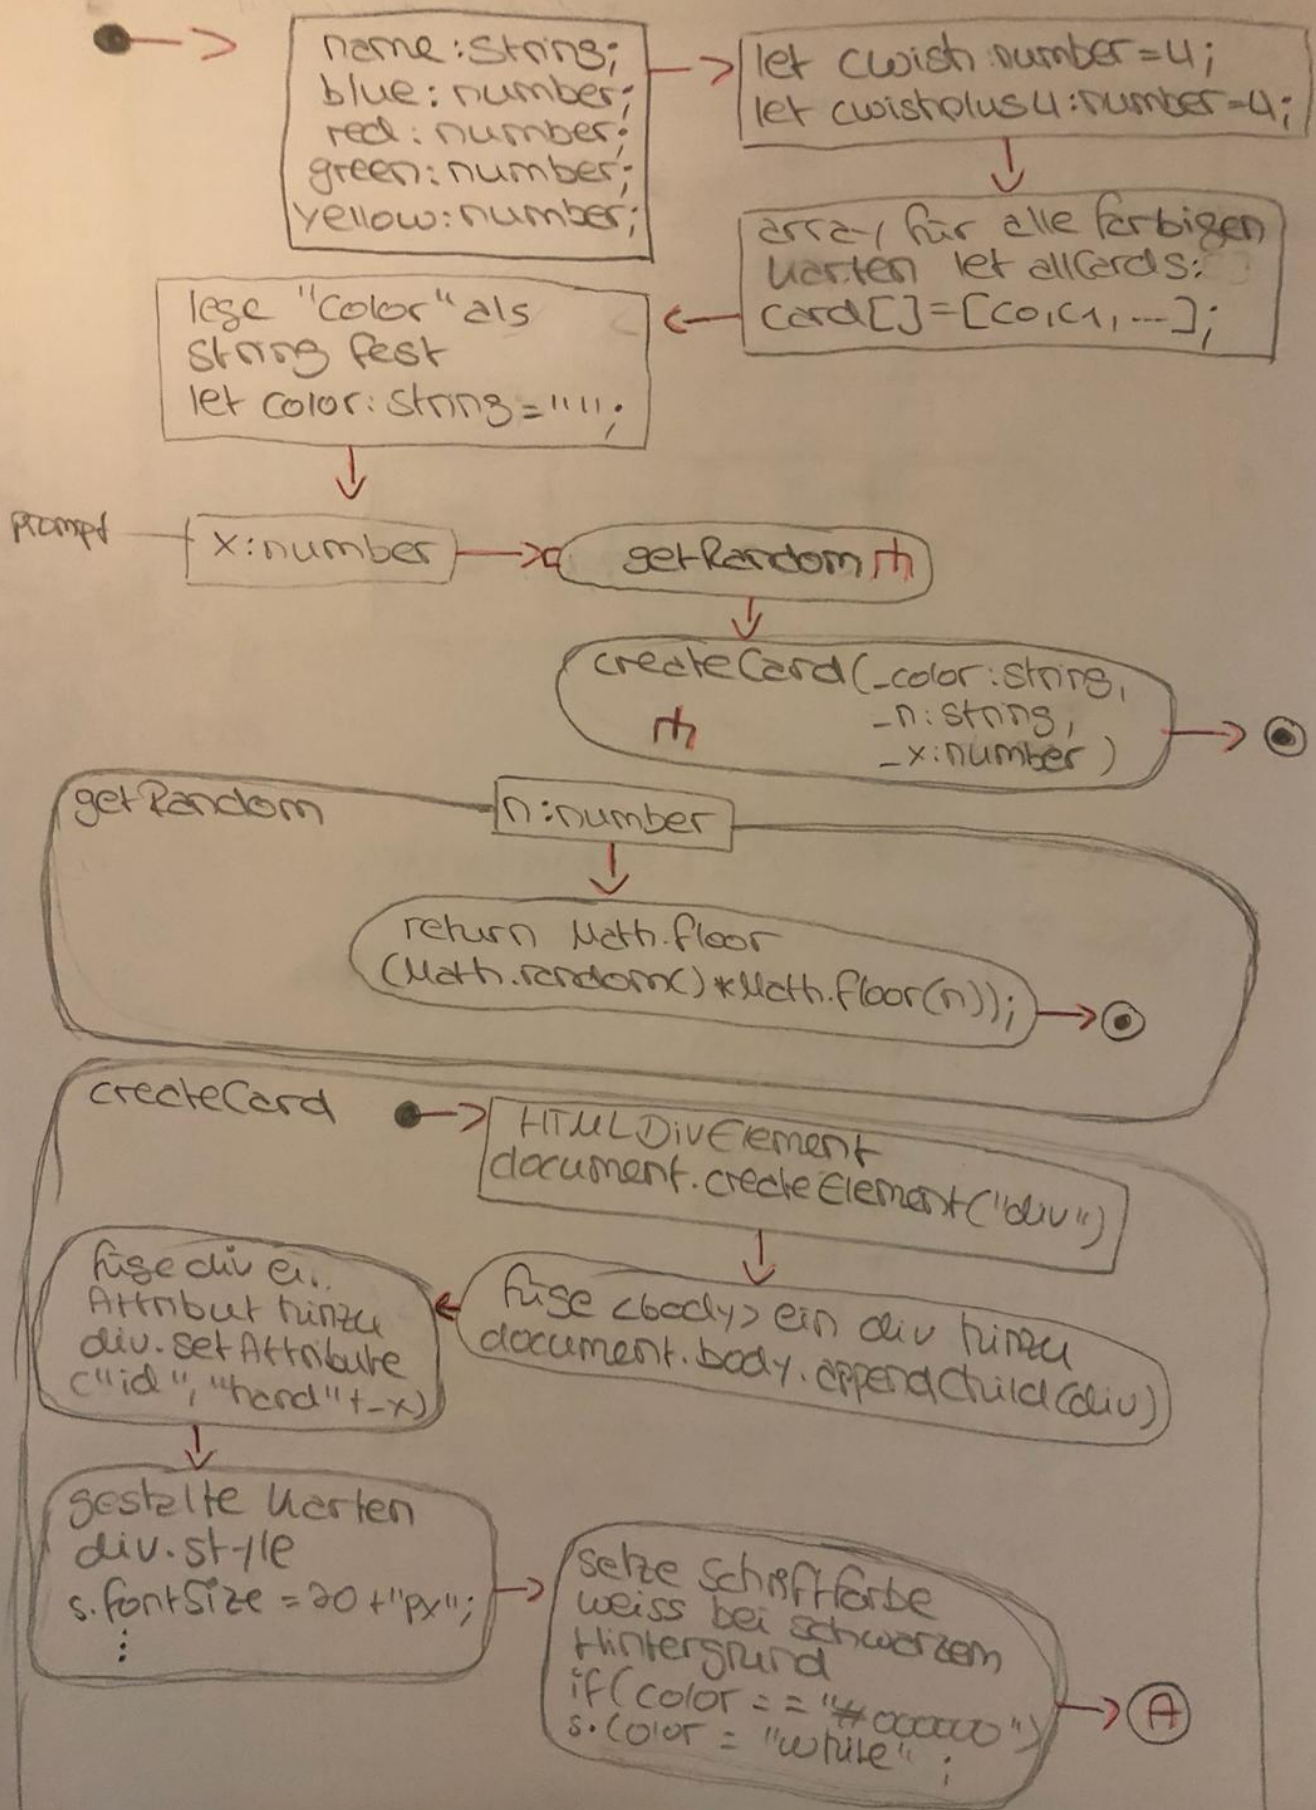 name: string;
blue: number;
red: number;
green: number;
yellow: number;
let cwish: number = 4;
let cwishplus4: number = 4;
array für alle farbigen
Karten let allCards:
card[] = [c0, c1, ...];
lege "Color" als
string fest
let color: string = "";
prompt
x: number
getRandom
createCard(_color: string,
_n: string,
_x: number)
getRandom
n: number
return Math.floor
(Math.random() * Math.floor(n));
createCard
HTMLDivElement
document.createElement("div")
füge <body> ein div hinzu
document.body.appendChild(div)
füge div ei..
Attribut hinzu
div.setAttribute
("id", "hand" + _x)
gestalte Karten
div.style
s.fontSize = 20 + "px";
⋮
setze Schriftfarbe
weiss bei schwarzem
Hintergrund
if (color == "#000000")
s.color = "white";
A